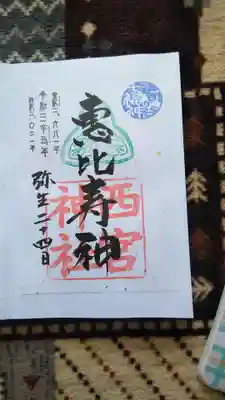 恵比寿神
西宮
神社
皇紀二、六八一年
令和三辛丑年
西暦二、〇二一年
弥生二十四日